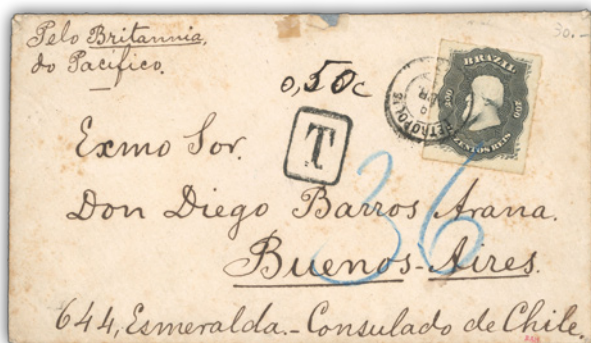 Pelo Britannia,
do Pacifico.
30.-
0,50c
BRAZIL
200 200
ZENTOS REIS
PETROPOLIS
T
36
Exmo Sor.
Don Diego Barros Arana.
Buenos-Aires.
644, Esmeralda.- Consulado de Chile.